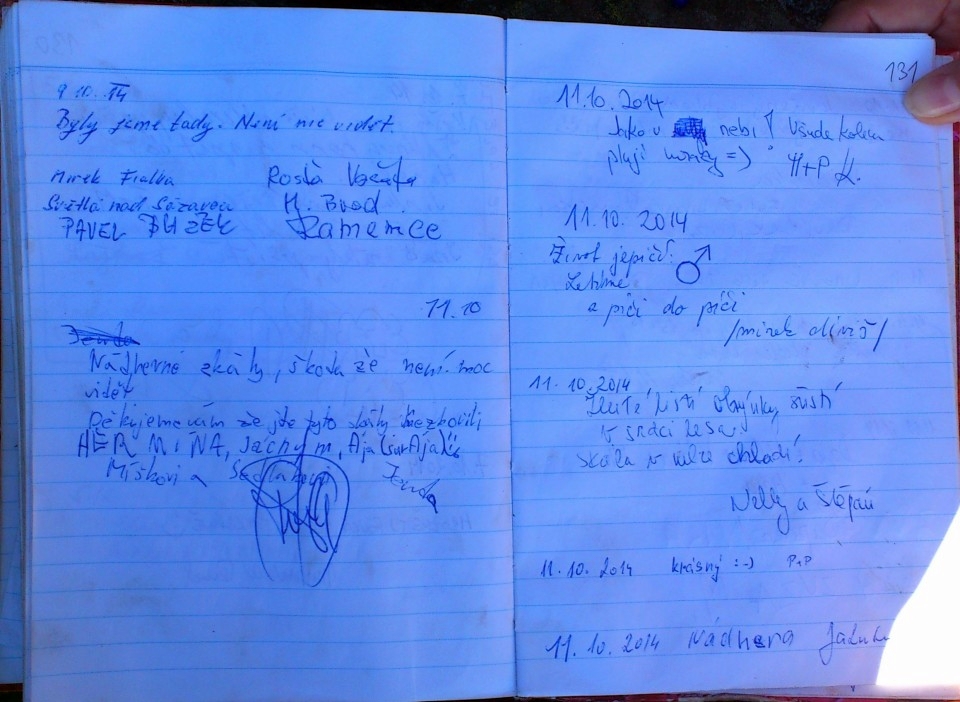 130
9.10. 14
Byly jsme tady. Není nic vidět.
Mirek Fialka
Rosťa
Světlá nad Sázavou
H. Brod.
PAVEL BUZEK
Kamenice
11.10
Jenda
Nádherné skály, škoda že není moc
vidět
Děkujeme vám že jste tyto skály
HERMÍNA, Jáchym, Ája
Míškovi a Sedlákovi
Jenda
131
11.10.2014
Jako v nebi! Všude kolem
plují mraky =) H+P K.
11.10. 2014
Život je
Letíme
a píči do píči
/mirek diviš/
11.10.2014
Žluté listí šustí
v srdci lesa.
skála v chladí!
Nelly a Štěpán
11.10.2014 krásný :-) P+P
11.10.2014 Nádhera